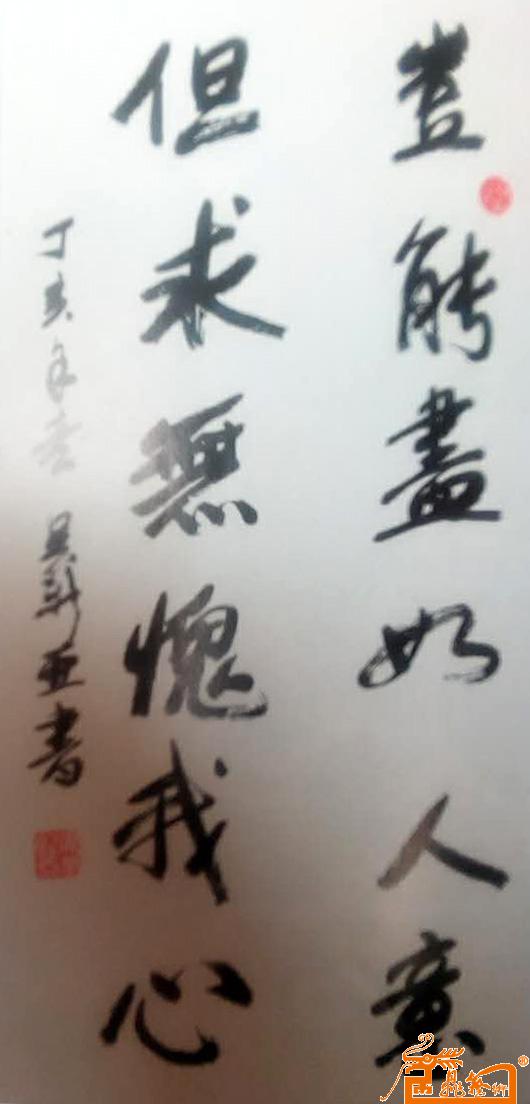 豈能盡如人意
但求無愧我心
丁亥年 吴 亚書